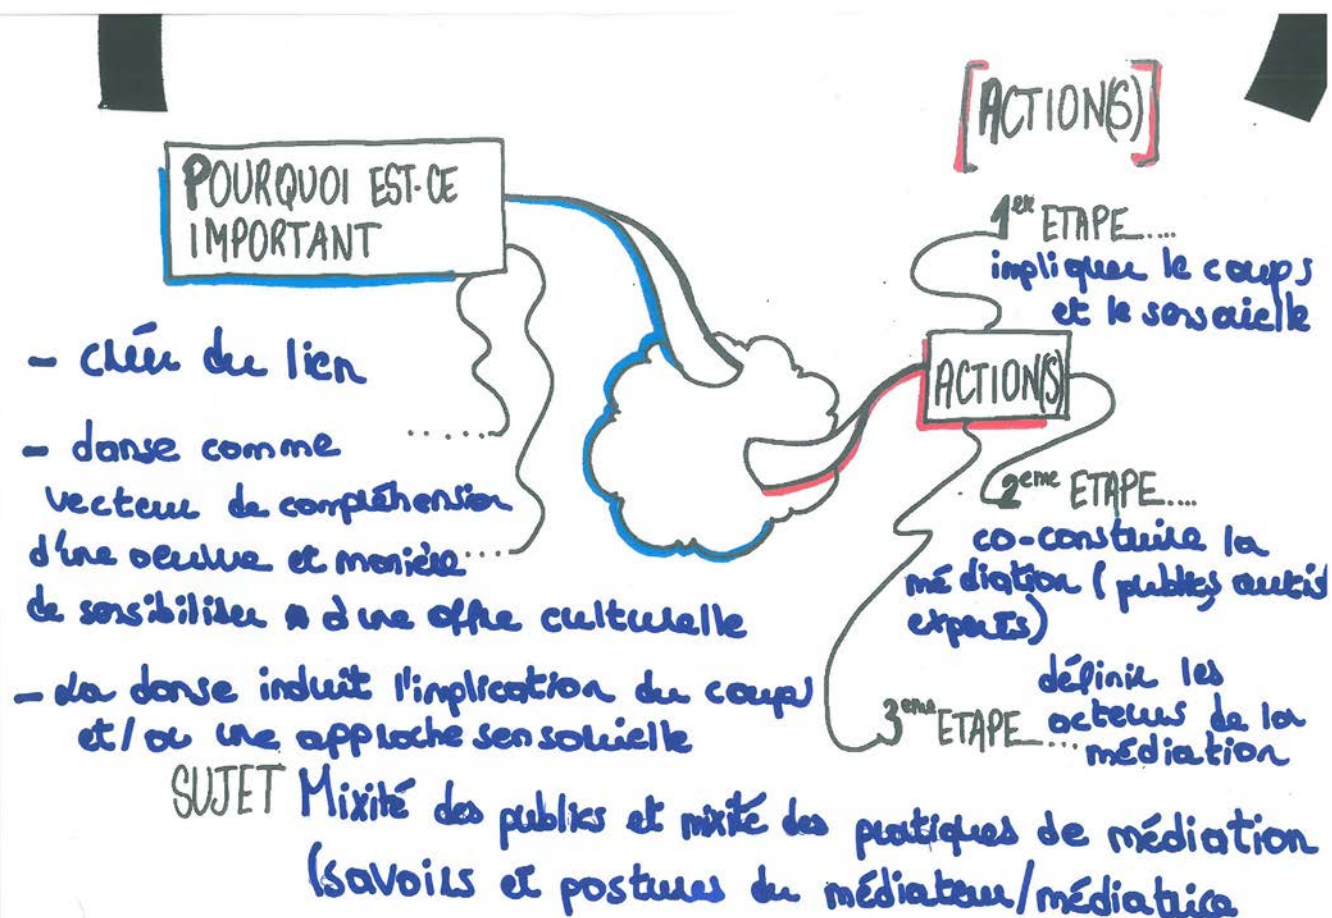 POURQUOI EST-CE
IMPORTANT
- créer du lien
- danse comme
vecteur de compréhension
d'une œuvre et manière
de sensibiliser à une offre culturelle
- La danse induit l'implication du corps
et/ou une approche sensorielle
[ACTION(S)]
1ere ETAPE.....
impliquer le corps
et le sensorielle
ACTION(S)
2eme ETAPE....
co-construire la
médiation (publics
experts)
3eme ETAPE.....
définir les
acteurs de la
médiation
SUJET Mixité des publics et mixité des pratiques de médiation
(savoirs et postures du médiateur/médiatrice